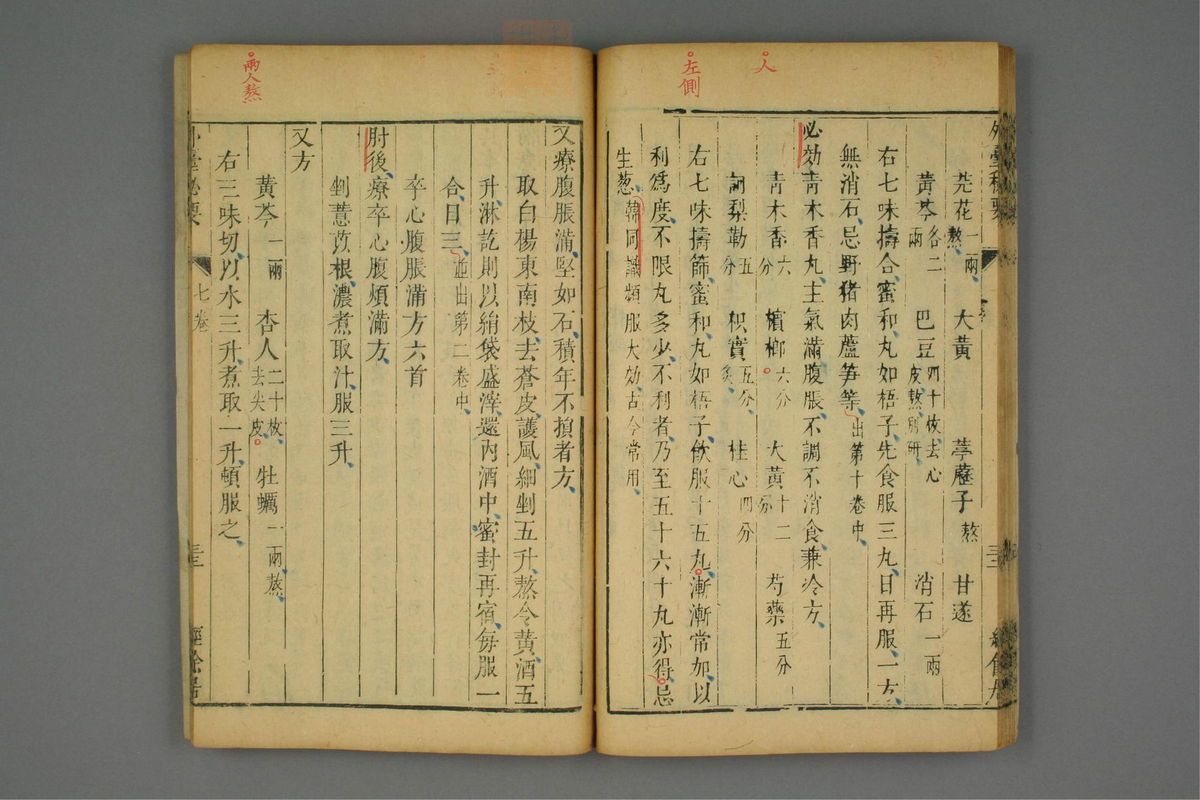 人
左側
芫花一兩熬 大黃 葶藶子熬 甘遂
黃芩各二兩 巴豆四十枚去心皮熬別研 消石一兩
右七味擣合蜜和丸如梧子先食服三丸日再服一方
無消石忌野猪肉蘆笋等出第十卷中
必効青木香丸主氣滿腹脹不調不消食兼冷方
青木香六分 檳榔六分 大黃十二分 芍藥五分
訶梨勒五分 枳實五分炙 桂心四分
右七味擣篩蜜和丸如梧子飲服十五丸漸漸常加以
利為度不限丸多少不利者乃至五十六十丸亦得忌
生葱韓同識頻服大効古今常用
又療腹脹滿堅如石積年不損者方
取白楊東南枝去蒼皮護風細剉五升熬令黃酒五
升淋訖則以絹袋盛滓還內酒中蜜封再宿每服一
合日三並出第二卷中
卒心腹脹滿方六首
肘後療卒心腹煩滿方
剉薏苡根濃煮取汁服三升
又方
黃芩一兩 杏人二十枚去尖皮 牡蠣一兩熬
右三味切以水三升煮取一升頓服之
兩人熬
七卷